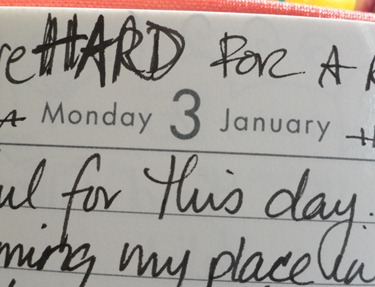 HARD FOR A
Monday 3 January
for this day.
my place